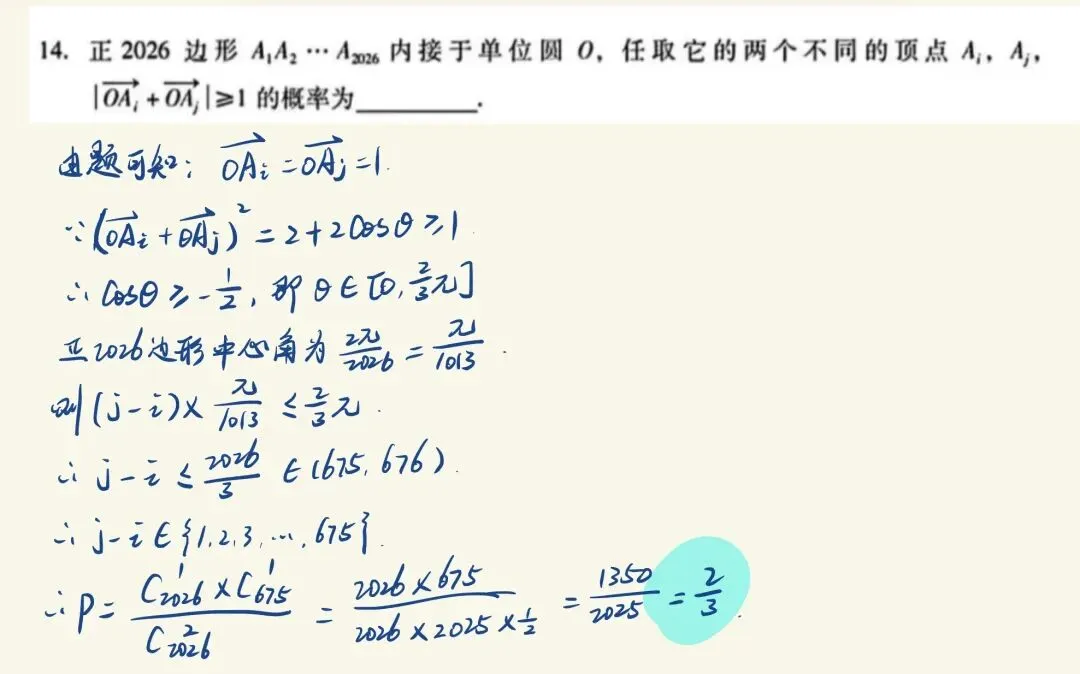 14. 正 2026 边形 A₁A₂⋯A₂₀₂₆ 内接于单位圆 O，任取它的两个不同的顶点 Aᵢ，Aⱼ，
|\overrightarrow{OAᵢ} + \overrightarrow{OAⱼ}|⩾1 的概率为________.
由题可知：\overrightarrow{OAᵢ} = \overrightarrow{OAⱼ} = 1.
∵ (\overrightarrow{OAᵢ} + \overrightarrow{OAⱼ})² = 2+2cosθ ⩾ 1
∴ cosθ ⩾ -\frac{1}{2}，即 θ∈[0, \frac{2}{3}π]
正2026边形中心角为 \frac{2π}{2026} = \frac{π}{1013}.
则 (j-i)× \frac{π}{1013} ≤ \frac{2}{3}π.
∴ j-i ≤ \frac{2026}{3} ∈(675, 676).
∴ j-i∈{1,2,3,⋯,675}.
∴ P= \frac{C_{2026}^{1}×C_{675}^{1}}{C_{2026}^{2}} = \frac{2026×675}{2026×2025×\frac{1}{2}} = \frac{1350}{2025} = \frac{2}{3}.